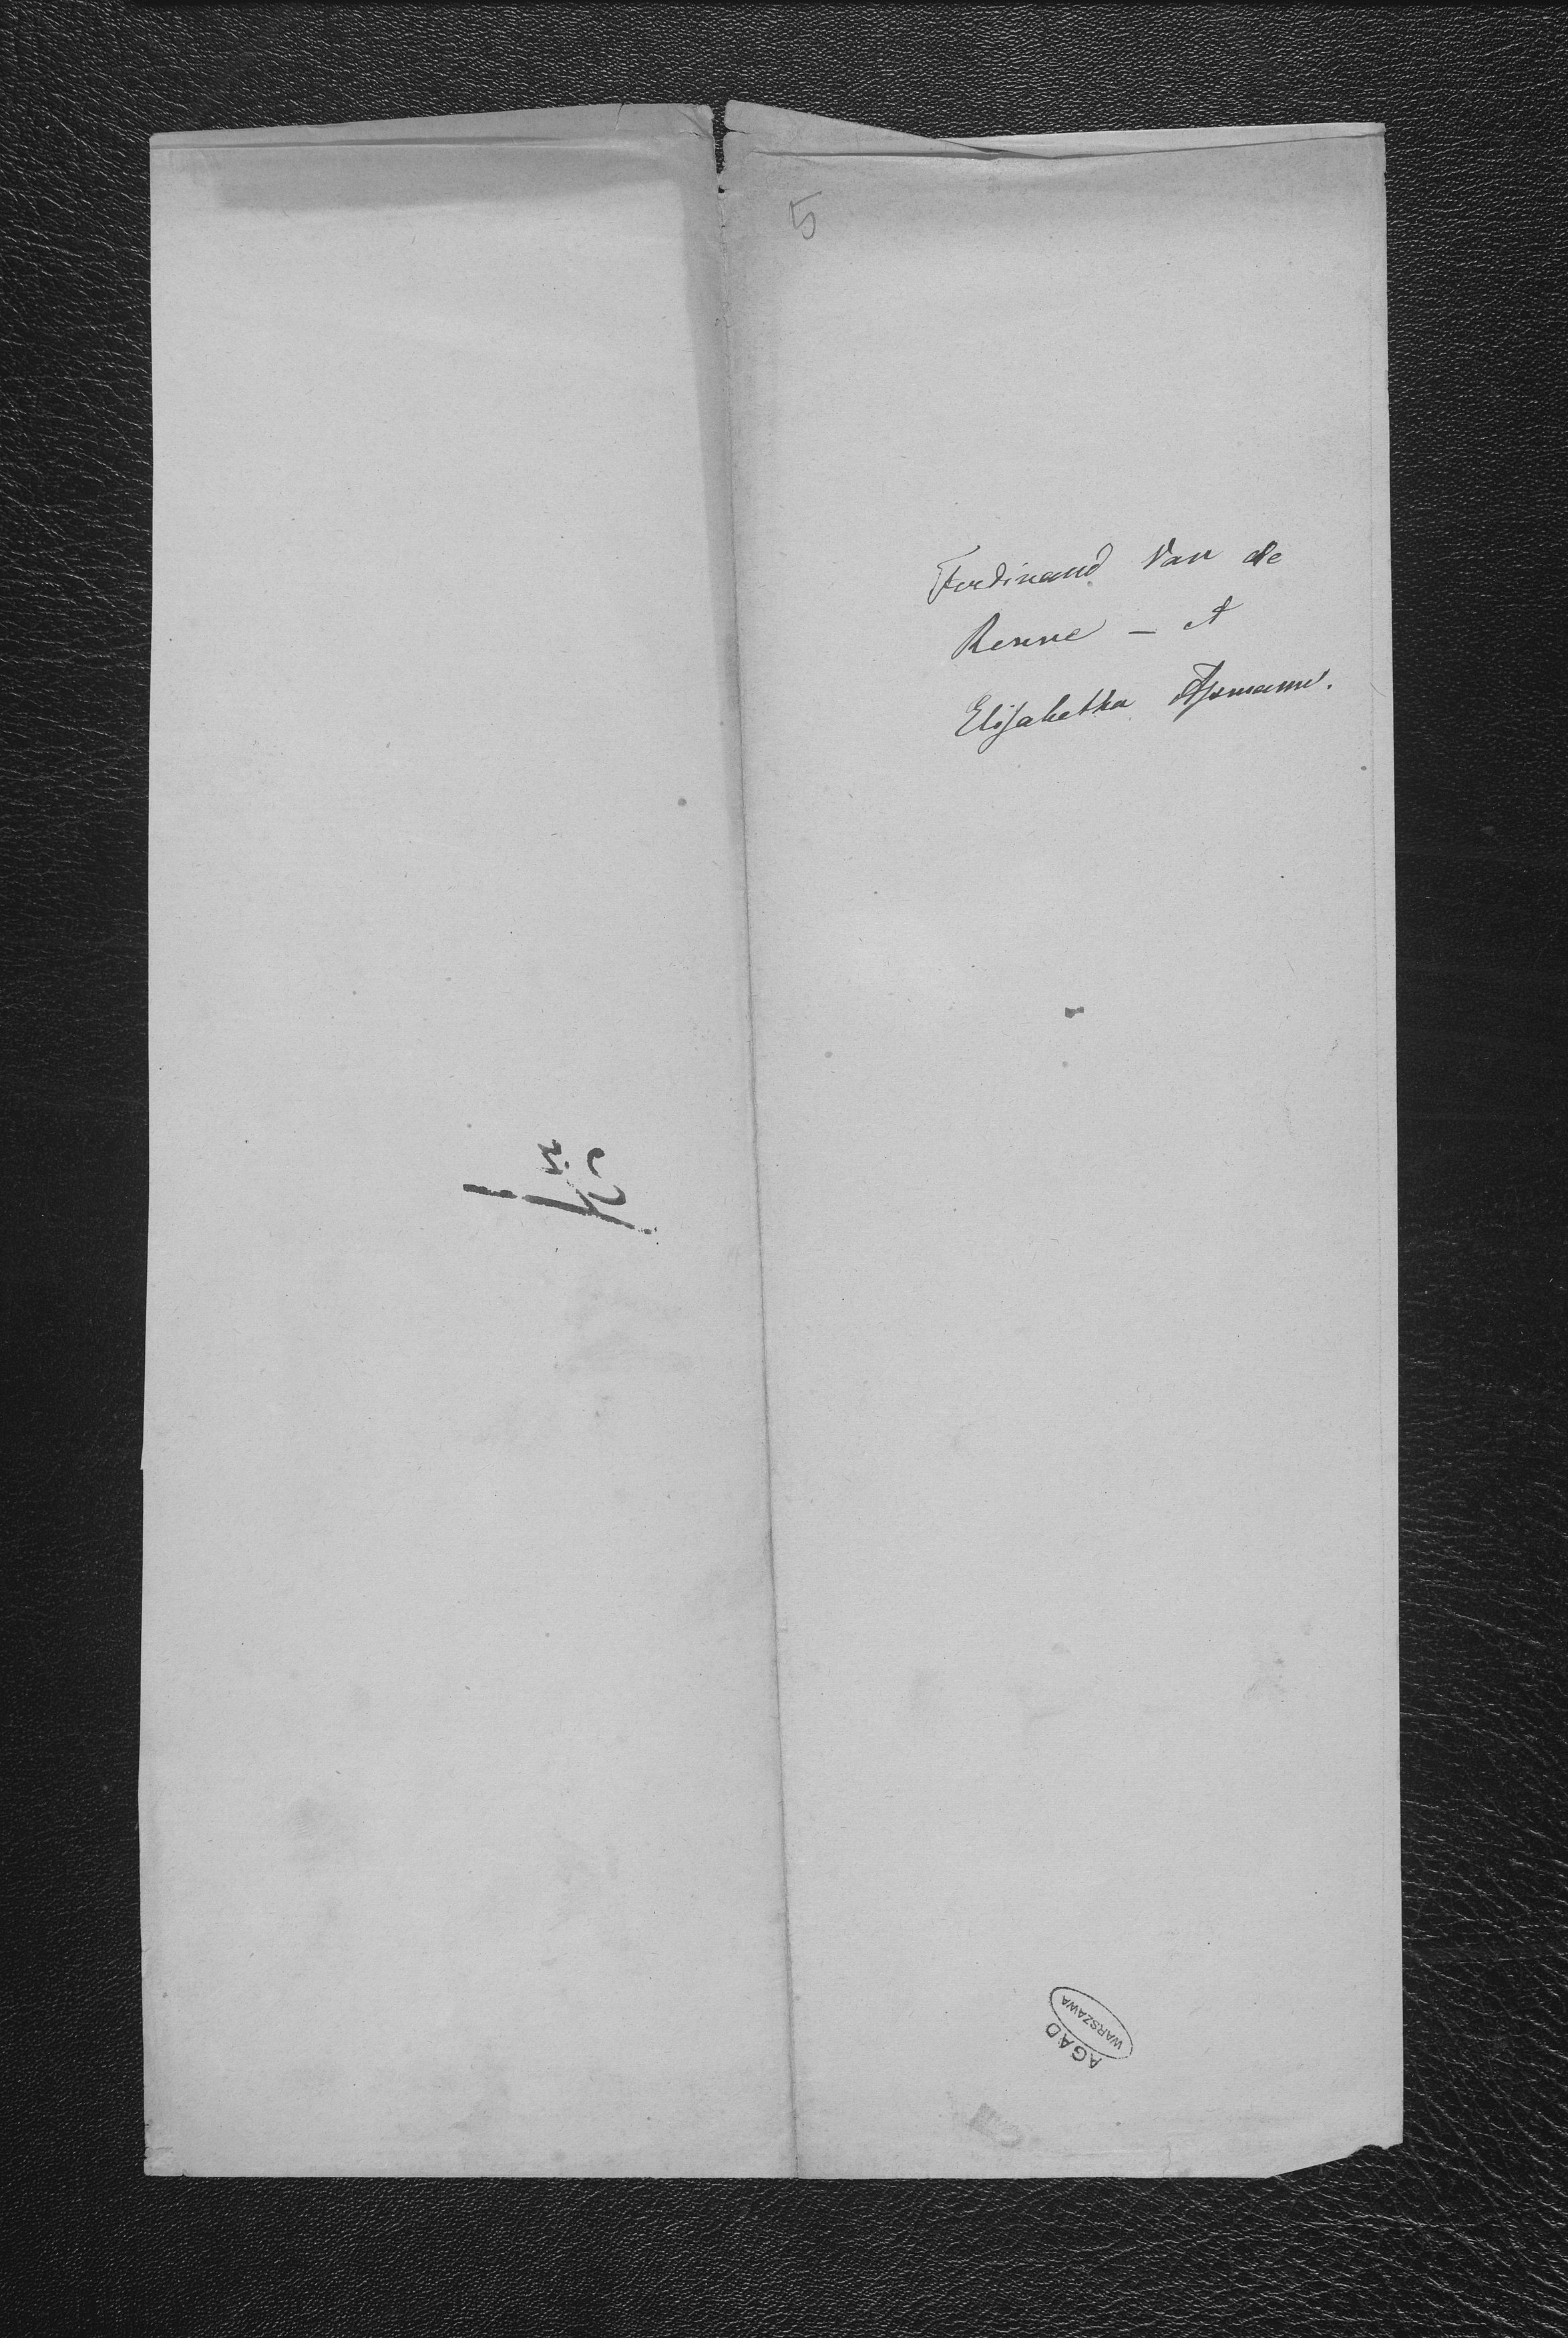 5
Ferdinand Van de
Renne – et
Elisabetha Assmann.
AGAD
WARSZAWA